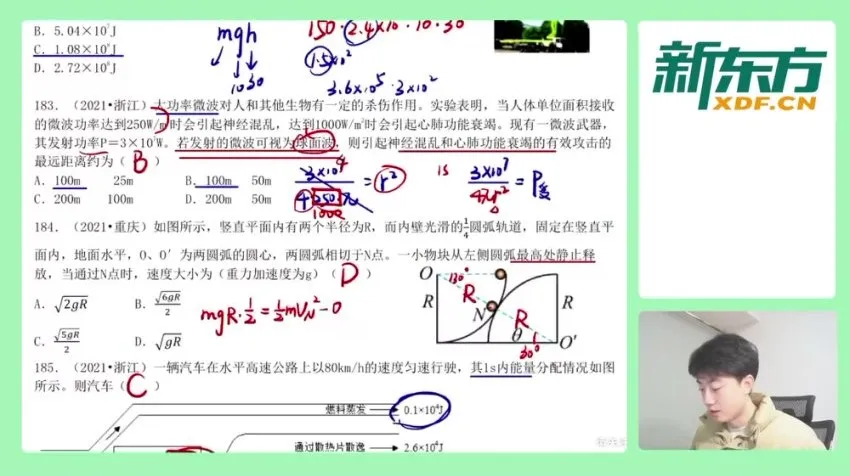 B. 5.04×10⁷J
C. 1.08×10⁸J
D. 2.72×10⁸J
mgh
10 30
150·2.4×10·10·30
1.5×10²
3.6×10⁵·3×10²
新东方
XDF.CN
183. (2021•浙江)大功率微波对人和其他生物有一定的杀伤作用。实验表明,当人体单位面积接收
的微波功率达到250W/m²时会引起神经混乱,达到1000W/m²时会引起心肺功能衰竭。现有一微波武器,
其发射功率P=3×10⁷W。若发射的微波可视为球面波,则引起神经混乱和心肺功能衰竭的有效攻击的
最远距离约为( B )
A. 100m 25m B. 100m 50m
C. 200m 100m D. 200m 50m
1s
3×10⁷
4πr²
= P
= r²
1000
184. (2021•重庆)如图所示,竖直平面内有两个半径为R,而内壁光滑的1/4圆弧轨道,固定在竖直平
面内,地面水平,O、O′为两圆弧的圆心,两圆弧相切于N点。一小物块从左侧圆弧最高处静止释
放,当通过N点时,速度大小为(重力加速度为g)( D )
A. √2gR B. √6gR/2
C. √5gR/2 D. √gR
mgR·1/2=1/2mV_N²-0
O
30°
R
R
N
R
R
θ
30°
O′
185. (2021•浙江)一辆汽车在水平高速公路上以80km/h的速度匀速行驶,其1s内能量分配情况如图
所示。则汽车( C
燃料蒸发 0.1×10⁴J
通过散热片散逸 2.6×10⁴J